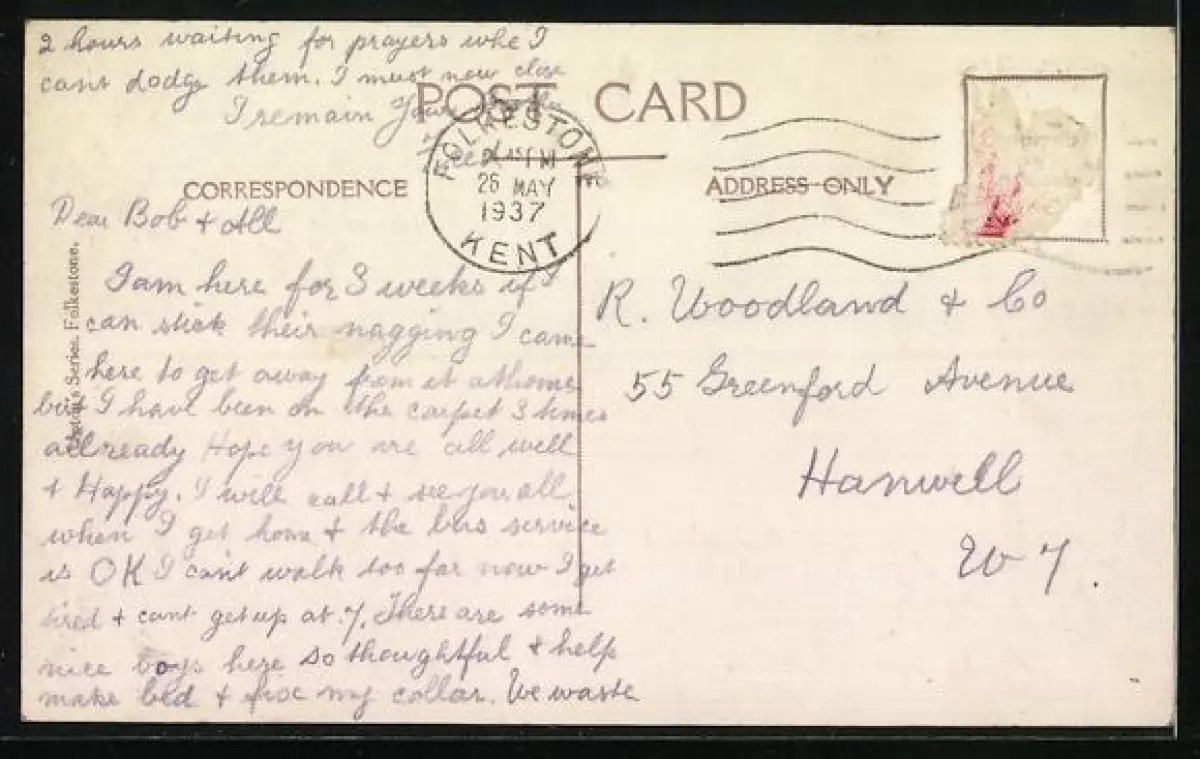 POST CARD
CORRESPONDENCE
ADDRESS ONLY
FOLKESTONE
45 PM
26 MAY
1937
KENT
Series. Folkestone.
Dear Bob & All
I am here for 3 weeks if I
can stick their nagging I came
here to get away from it at home
but I have been on the carpet 3 times
allready Hope you are all well
& Happy. I will call & see you all
when I get home & the bus service
is OK I can't walk too far now I get
tired & cant get up at 7. There are some
nice boys here so thoughtful & help
make bed & fix my collar. We waste
2 hours waiting for prayers whe I
cant dodge them. I must now close
I remain Your
R. Woodland & Co
55 Greenford Avenue
Hanwell
W 7.